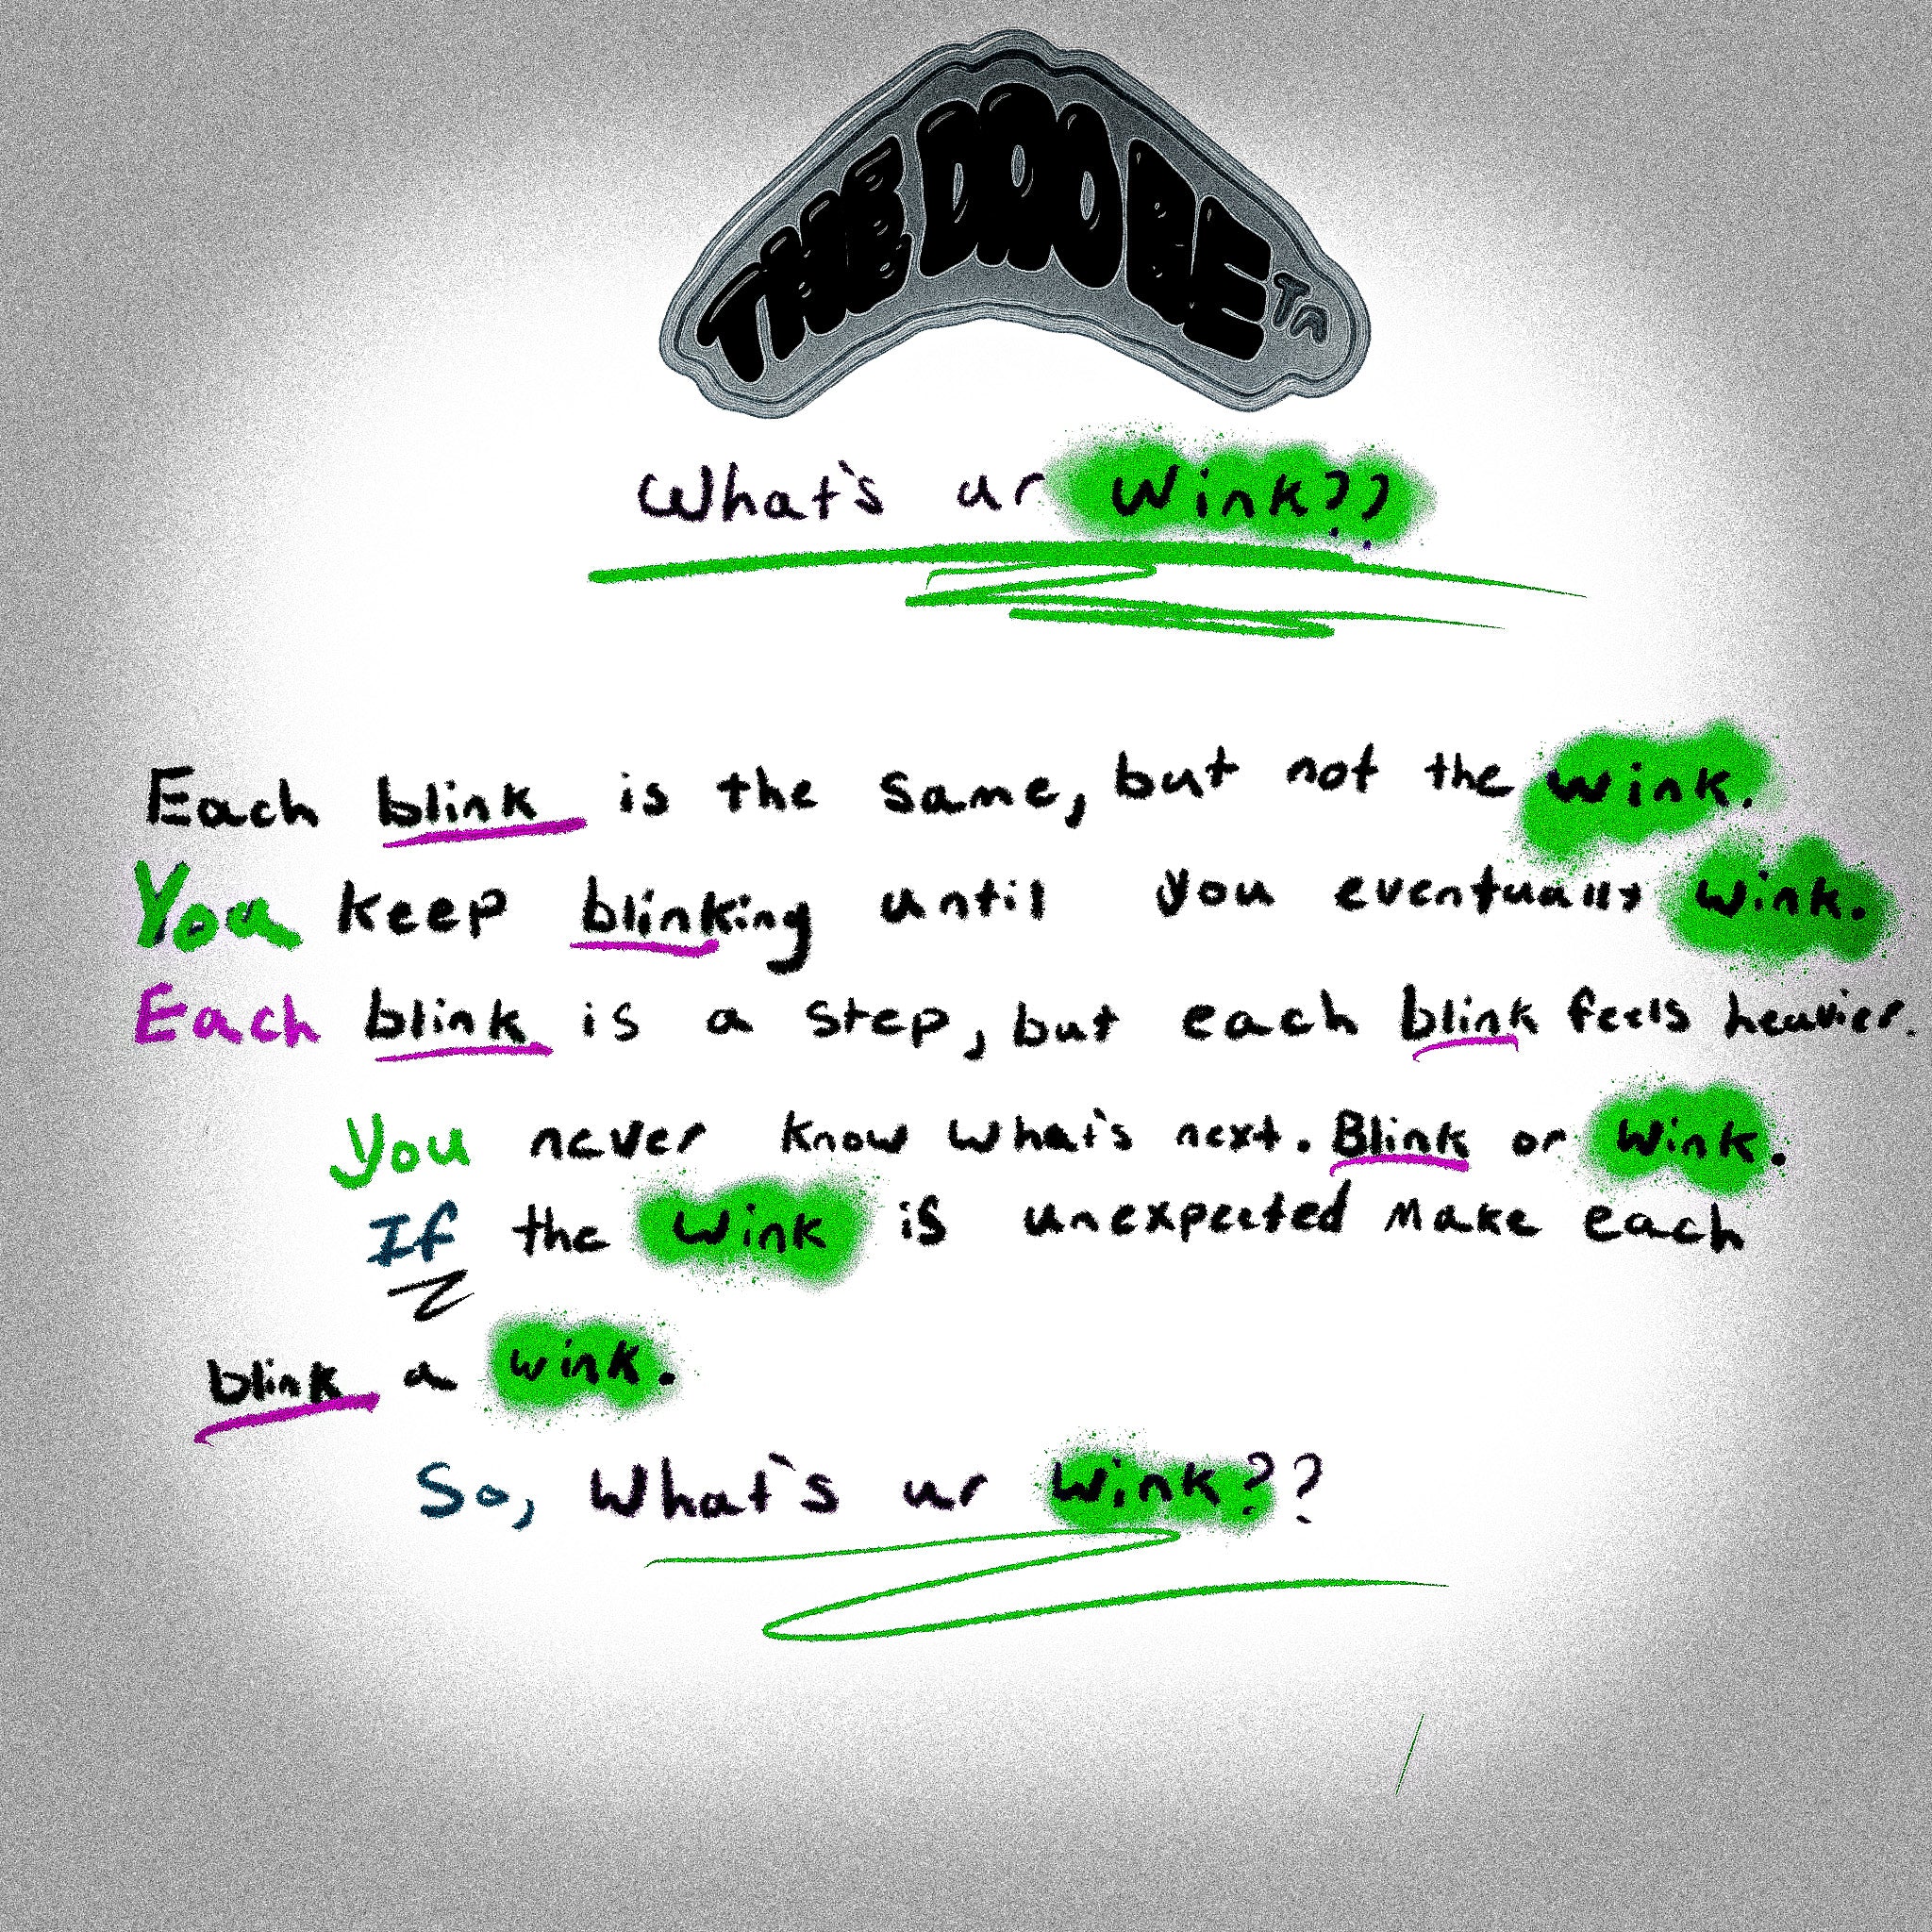 THE DOOBE TM
What's ur Wink??
Each blink is the same, but not the wink.
You keep blinking until you eventually wink.
Each blink is a step, but each blink feels heavier.
You never know what's next. Blink or Wink.
If the Wink is unexpected Make each
blink a wink.
So, What's ur Wink??